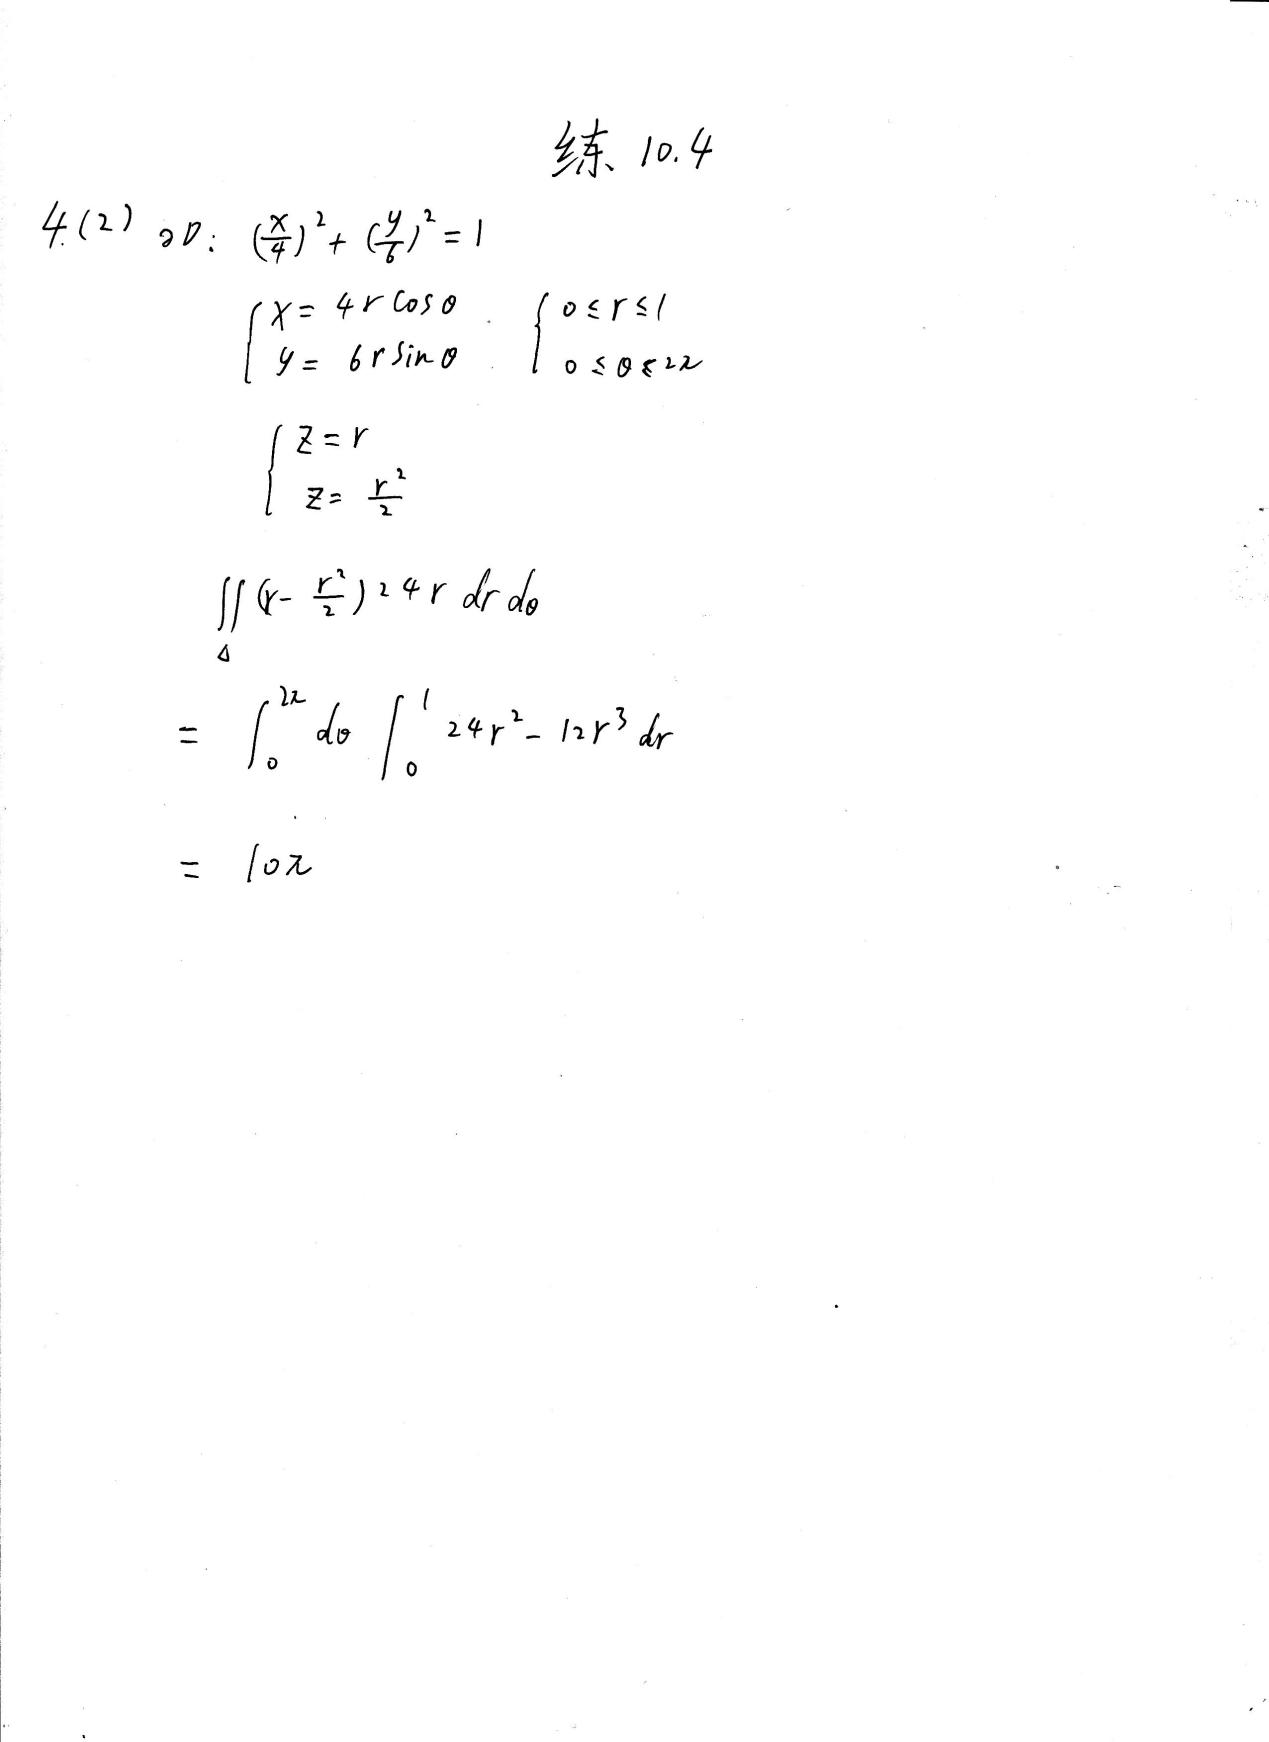 练 10.4
4.(2) ∂D: (x/4)² + (y/6)² = 1
{ x = 4r cosθ . { 0 ≤ r ≤ 1
y = 6r sinθ . 0 ≤ θ ≤ 2π
{ z = r
z = r²/2
∬_Δ (r - r²/2) 24r dr dθ
= ∫₀^{2π} dθ ∫₀^1 24r² - 12r³ dr
= 10π